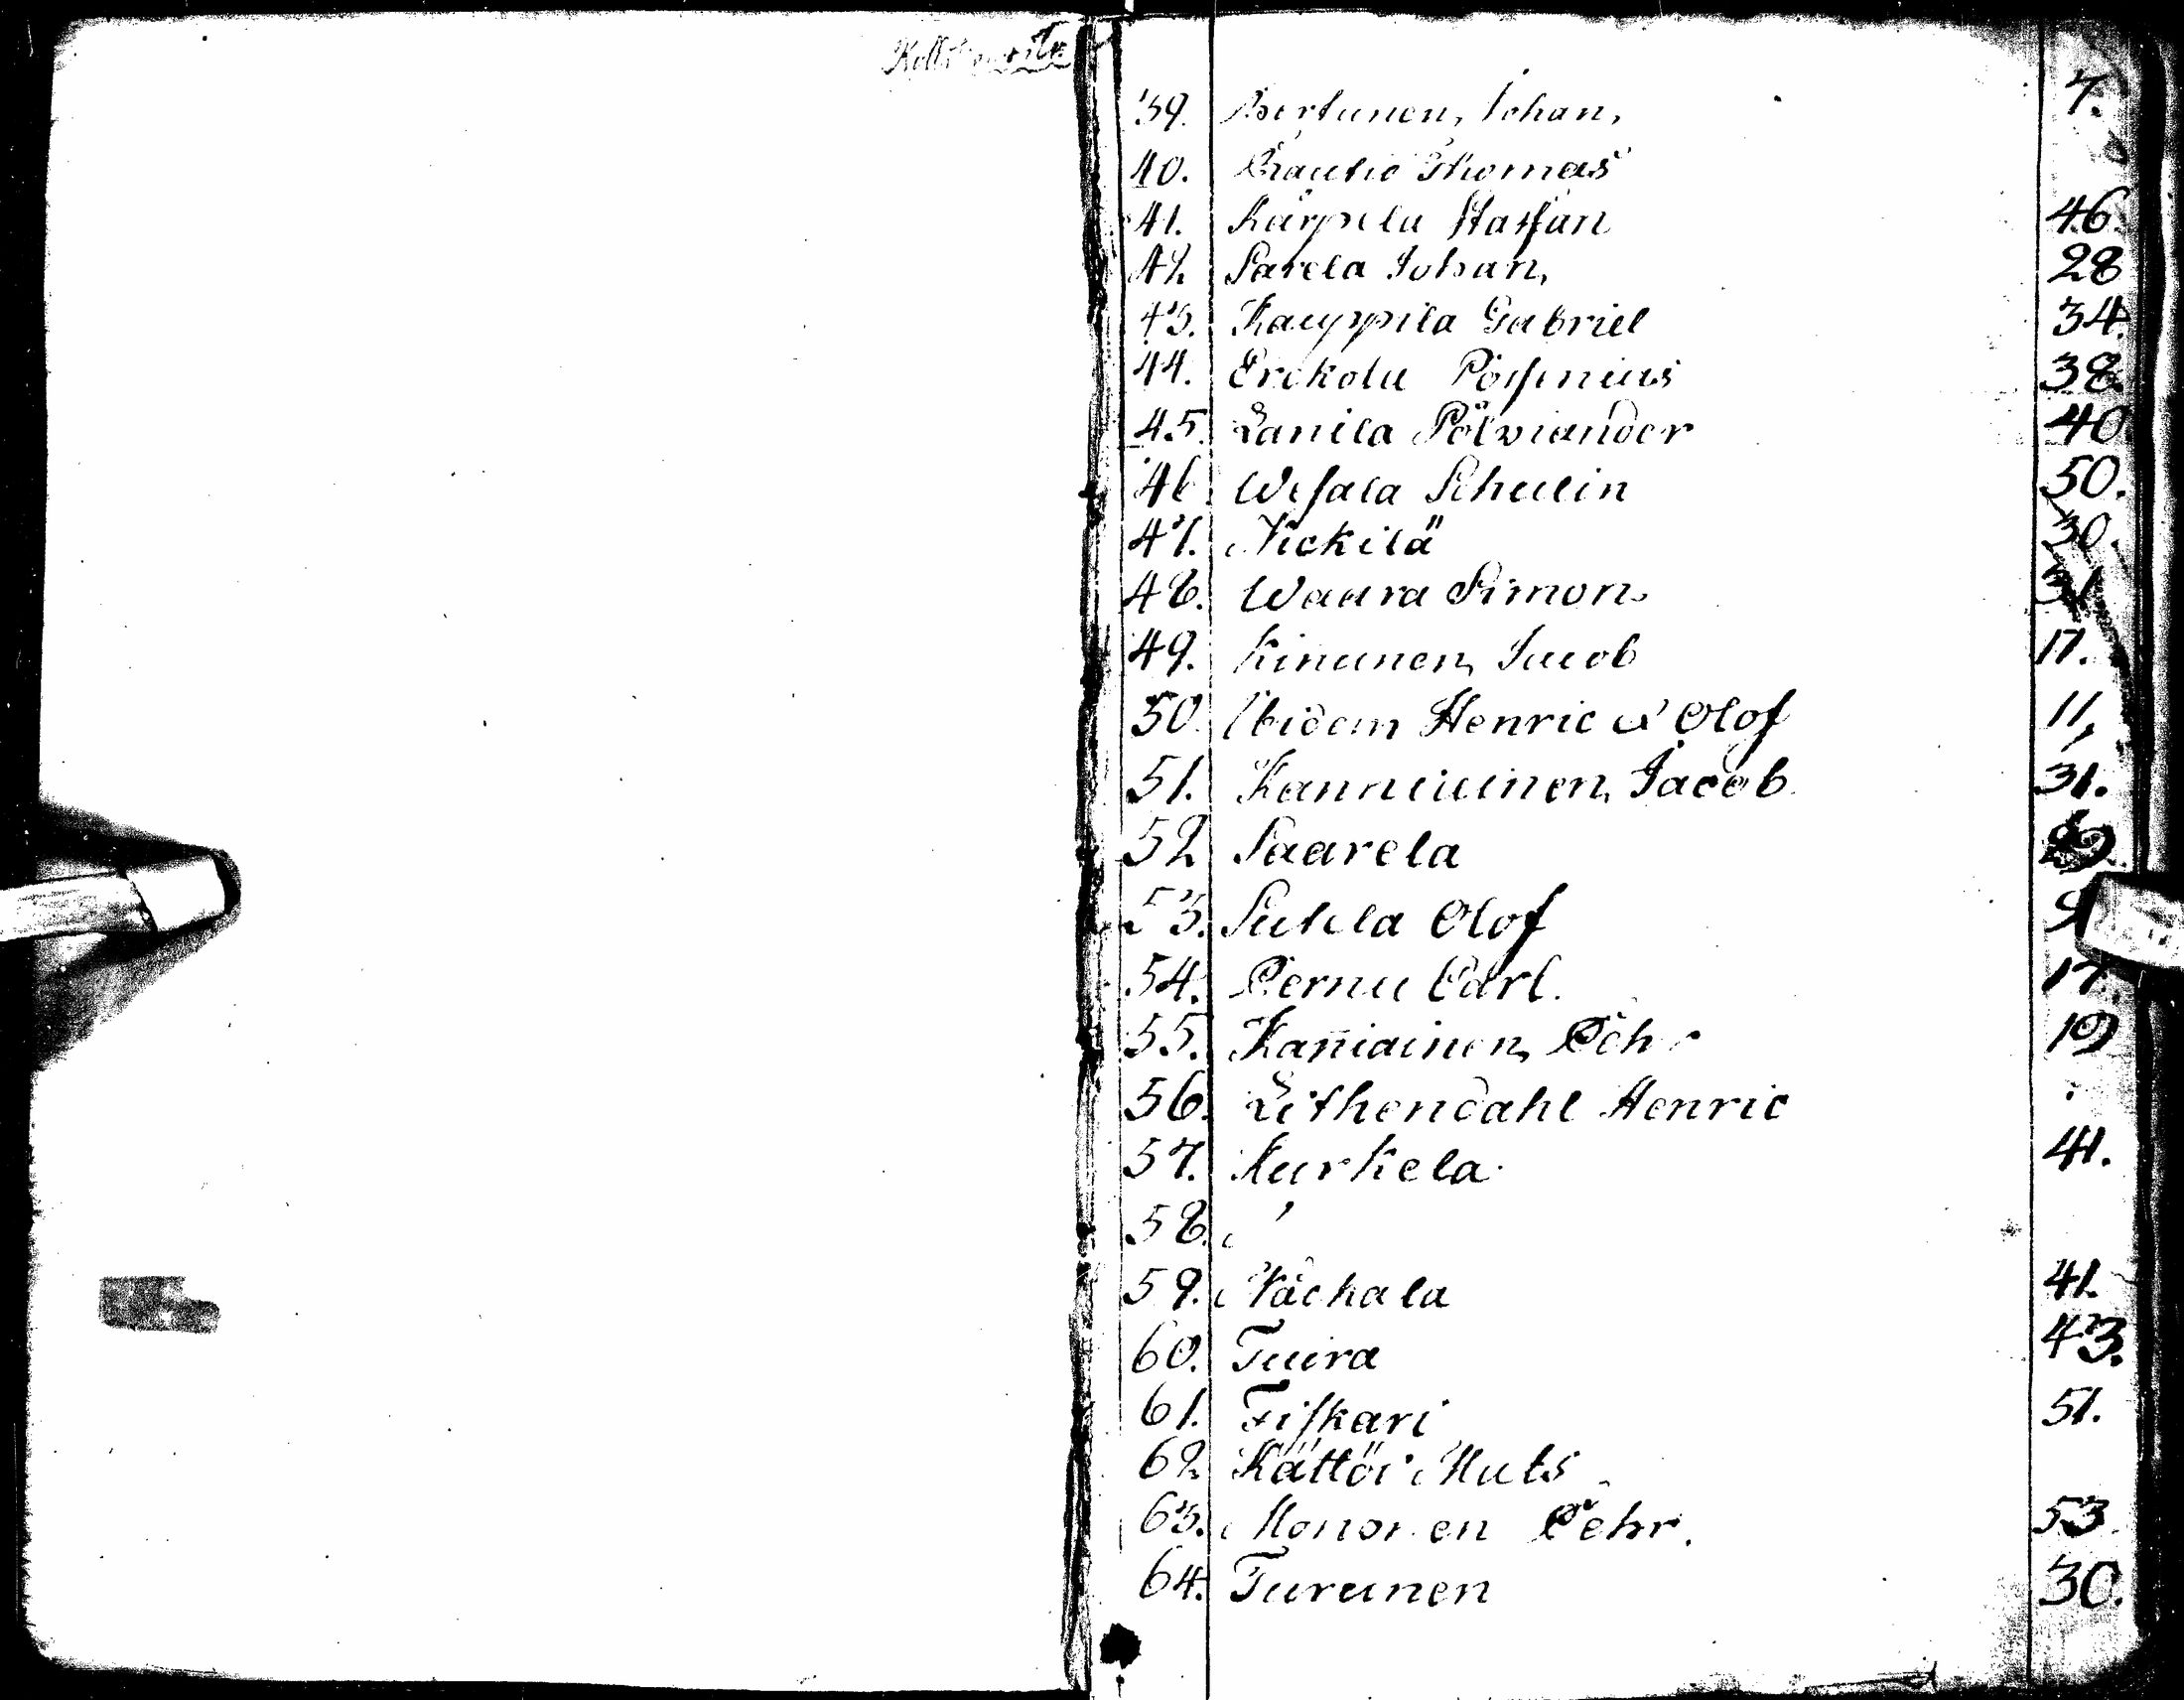 39. Bertunen, Johan, 7.
40. Rautio Thomas
41. Kärpelä Staffan 46.
42 Sarela Johan, 28
43. Kauppila Gabriel 34.
44. Erckola 38.
45. Lanila Pölviander 40
46. Wesala Schulin 50.
47. Nickilä 30.
48. Waara Simon 31
49. Kinunen, Jacob 17.
50. Ibidem Henric & Olof 11,
51. Kanniainen, Jacob 31.
52 Saarela
53. Sutela Olof 9
54. Pernu Carl. 17.
55. Kaniainen, Pehr 19
56. Lithendahl Henric
57. Kurkela 41.
58.
59. Wäckala 41.
60. Tuira 43.
61. Fiskari 51.
62. Kättöi Mats
63. Mononen Pehr. 53
64. Turunen 30.